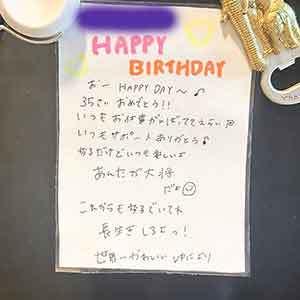 HAPPY
BIRTHDAY
お〜 HAPPY DAY〜♪
35さい おめでとう!!
いつもお仕事がんばっててえらい
いつもサポートありがとう♪
なるだけどいつも楽しいよ
あんたが大将
だよ
これからもなるでいてね
長生きしろよっ!
世界一かわいい